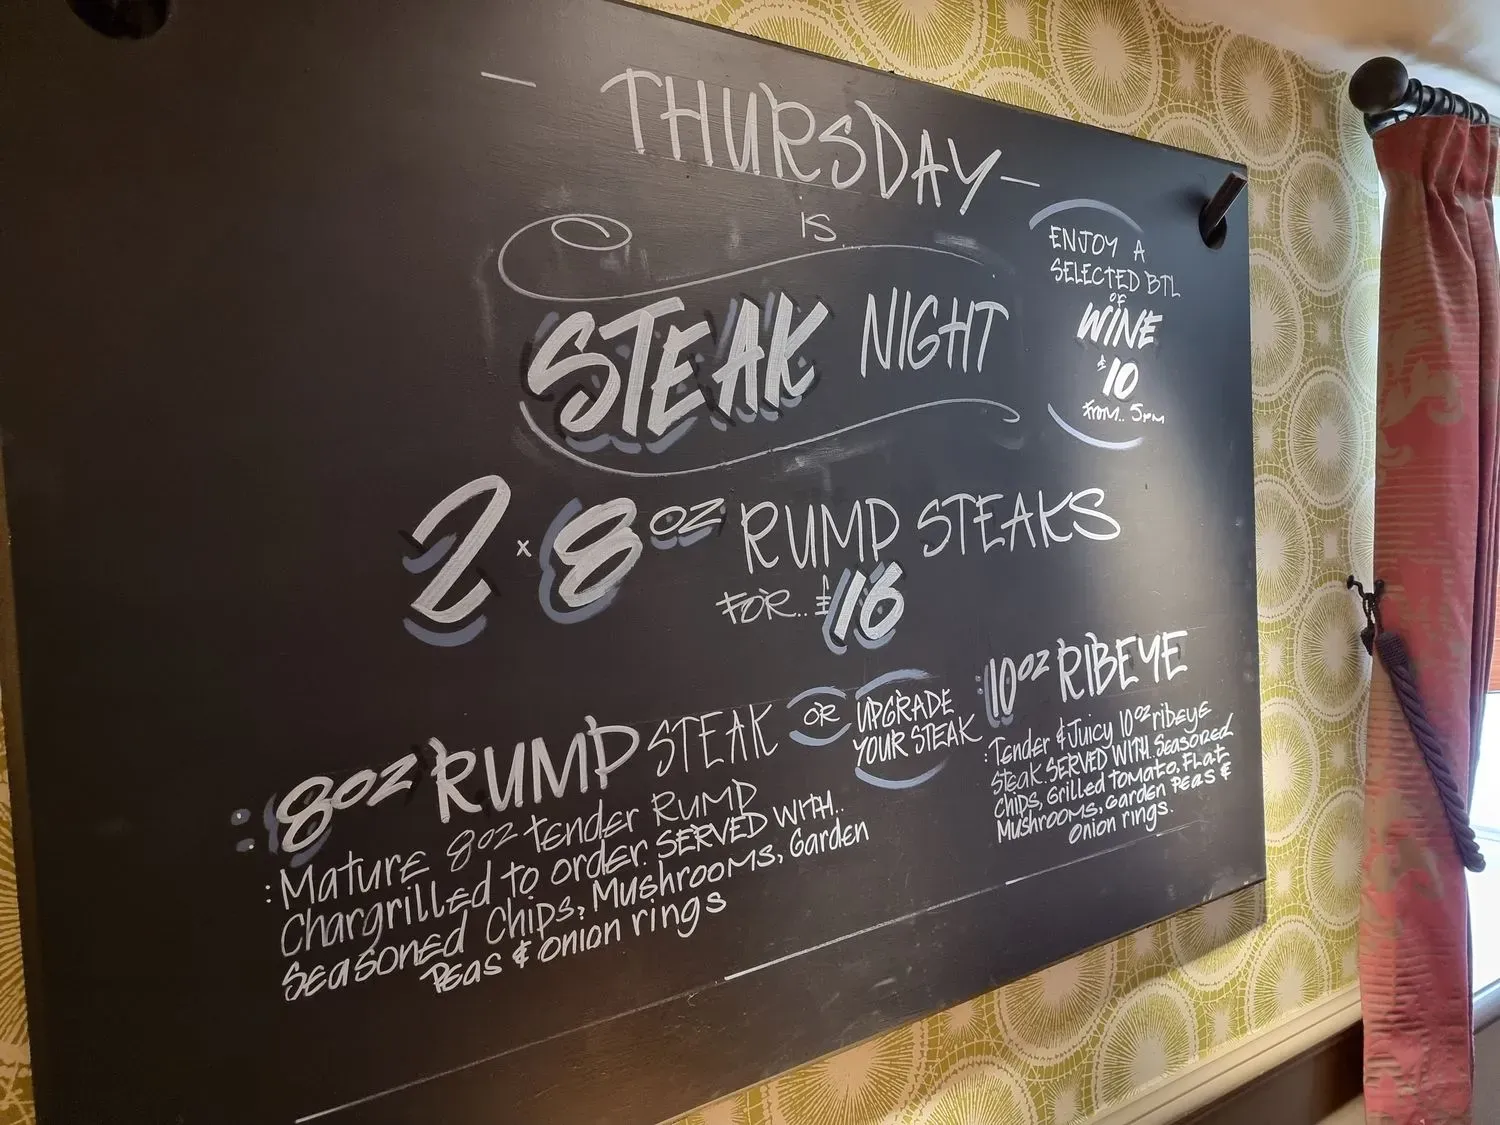 - THURSDAY -
is
STEAK NIGHT
ENJOY A
SELECTED BTL
OF
WINE
£10
FROM.. 5pm
2 x 8oz RUMP STEAKS
FOR.. £16
: 8oz RUMP STEAK
: Mature 8oz tender Rump
Chargrilled to order. SERVED WITH..
Seasoned Chips, Mushrooms, Garden
Peas & Onion rings
OR
UPGRADE
YOUR STEAK
: 10oz RIBEYE
: Tender & Juicy 10oz ribeye
Steak. SERVED WITH Seasoned
Chips, Grilled tomato, Flat
Mushrooms, Garden Peas &
Onion rings.